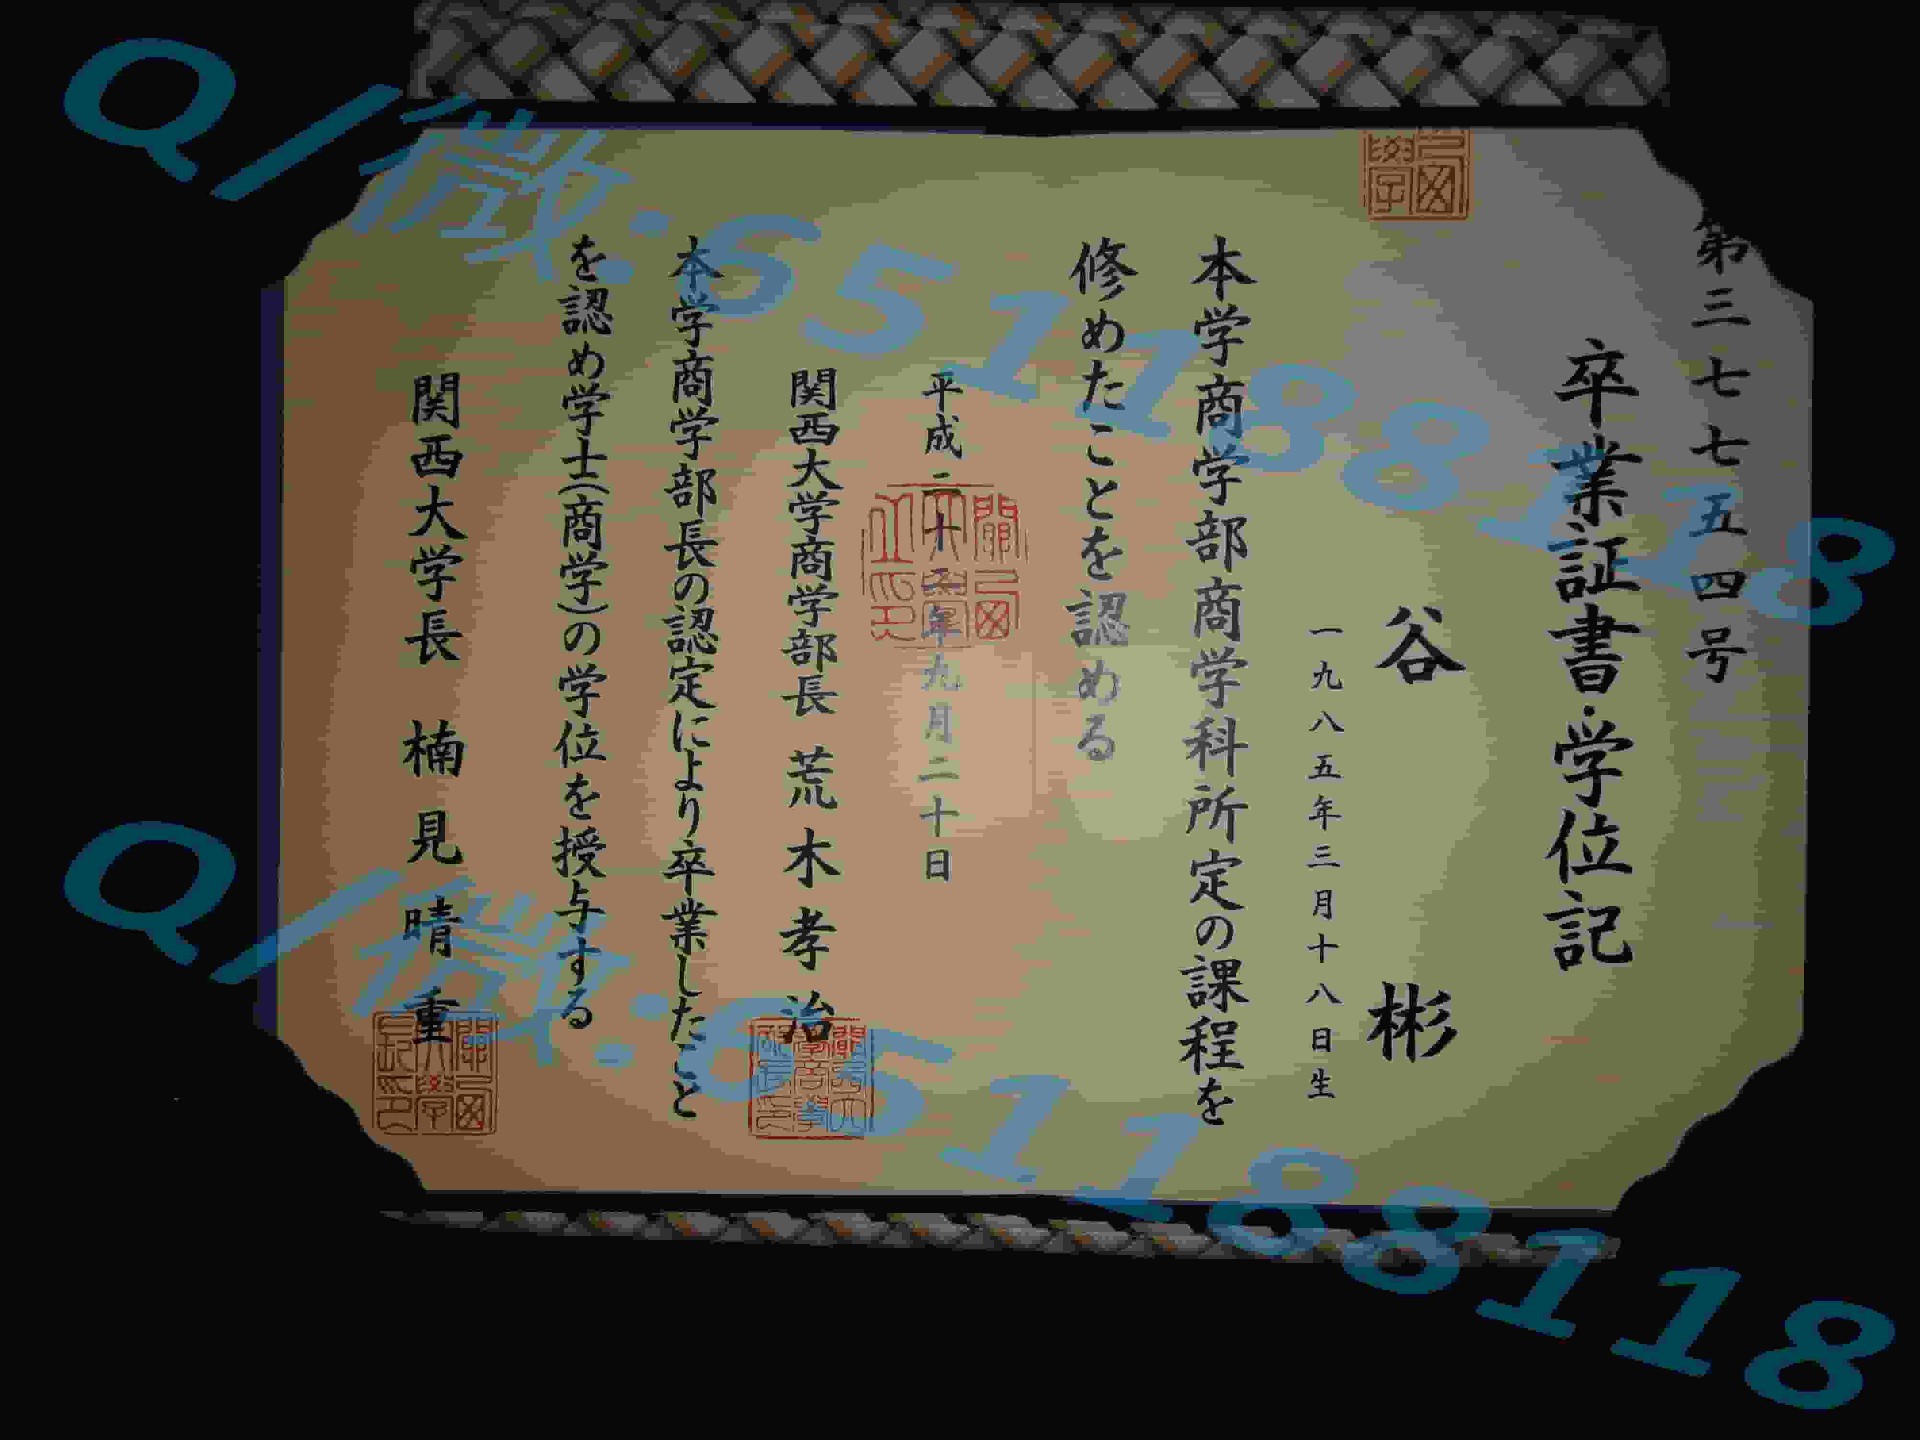 第三七七五四号
卒業証書・学位記
谷 彬
一九八五年三月十八日生
本学商学部商学科所定の課程を
修めたことを認める
平成二十五年九月二十日
関西大学商学部長 荒木孝治
本学商学部長の認定により卒業したこと
を認め学士(商学)の学位を授与する
関西大学長 楠見晴重
Q/微:651188118
Q/微:651188118